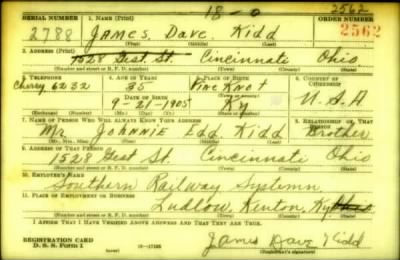 18-0 2562
SERIAL NUMBER 1. NAME (Print) ORDER NUMBER
2788 JAMES, Dave. Kidd 2562
(First) (Middle) (Last)
2. ADDRESS (Print)
1528 Gest. St. Cincinnati Ohio
(Number and street or R. F. D. number) (Town) (County) (State)
3. TELEPHONE 4. AGE IN YEARS 5. PLACE OF BIRTH 6. COUNTRY OF CITIZENSHIP
Cherry 6232 35 Pine Knot
DATE OF BIRTH (Town or county)
9-21-1905 Ky U.S.A
(Exchange) (Number) (Mo.) (Day) (Yr.) (State or country)
7. NAME OF PERSON WHO WILL ALWAYS KNOW YOUR ADDRESS 8. RELATIONSHIP OF THAT PERSON
Mr. Johnnie Edd Kidd Brother
(Mr., Mrs., Miss) (First) (Middle) (Last)
9. ADDRESS OF THAT PERSON
1528 Gest St. Cincinnati Ohio
(Number and street or R. F. D. number) (Town) (County) (State)
10. EMPLOYER'S NAME
Southern Railway Systemn.
11. PLACE OF EMPLOYMENT OR BUSINESS
Ludlow, Kenton, Ky
(Number and street or R. F. D. number) (Town) (County) (State)
I AFFIRM THAT I HAVE VERIFIED ABOVE ANSWERS AND THAT THEY ARE TRUE.
REGISTRATION CARD
D. S. S. Form 1 16-17105 James Dave Kidd
(Registrant's signature)